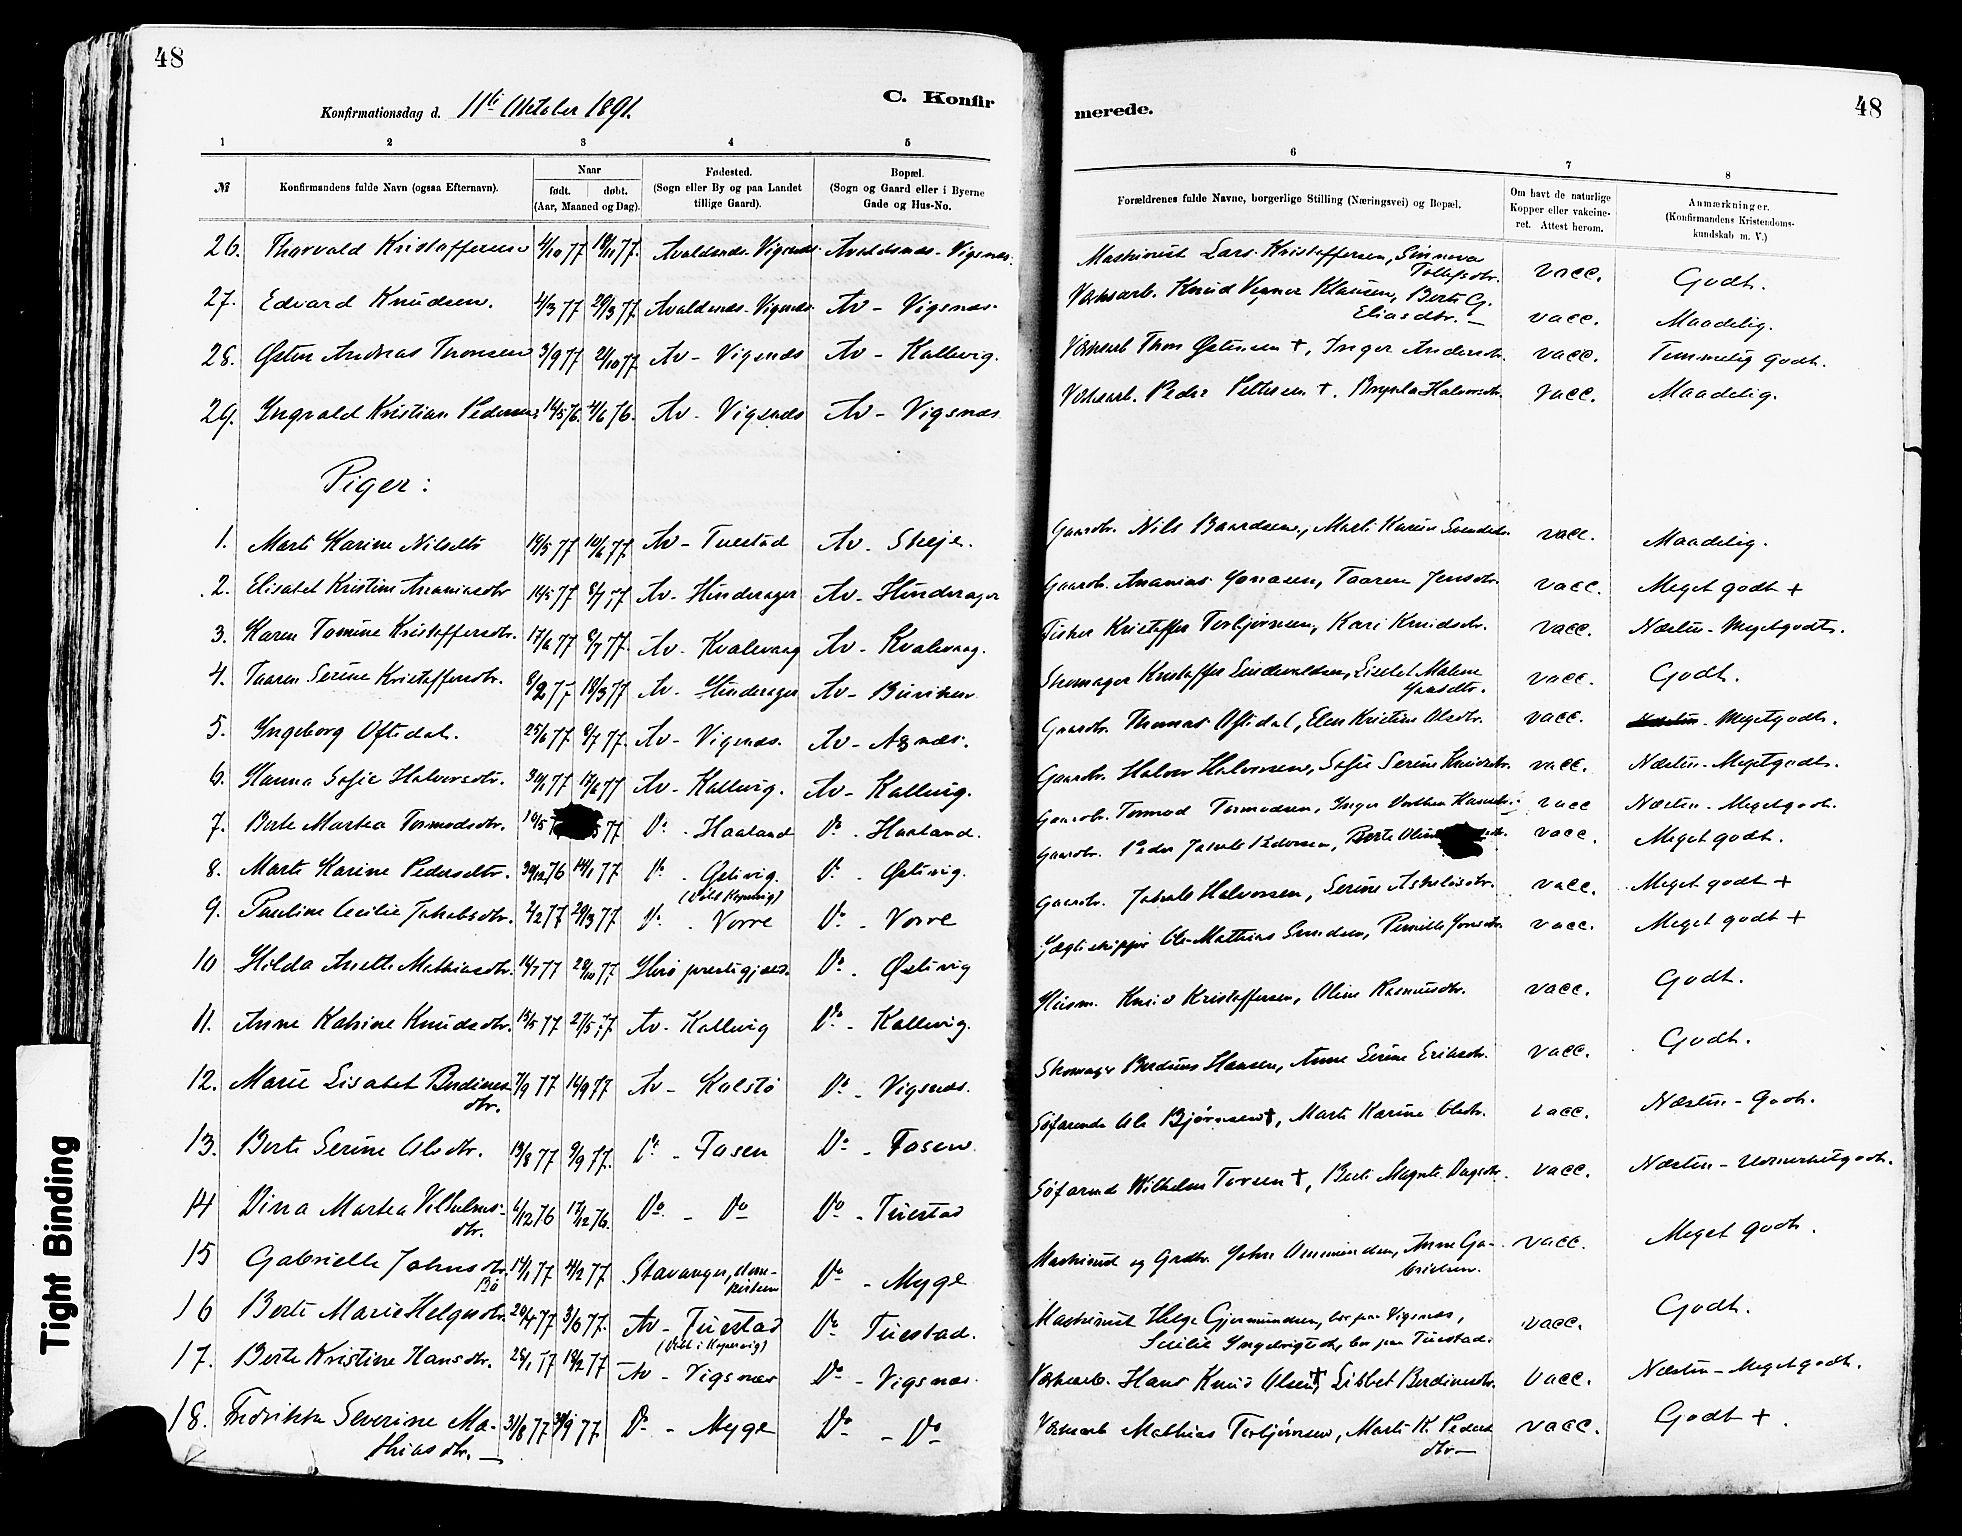 48
48
Konfirmationsdag d. 11te Oktober 1891.
C. Konfir
merede.
1 2 3 4 5
6 7 8
№ Konfirmandens fulde Navn (ogsaa Efternavn). Naar født. døbt. (Aar, Maaned og Dag). Fødested. (Sogn eller By og paa Landet tillige Gaard). Bopæl. (Sogn og Gaard eller i Byerne Gade og Hus-No.
Forældrenes fulde Navne, borgerlige Stilling (Næringsvei) og Bopæl. Om havt de naturlige Kopper eller vakcineret. Attest herom. Anmærkninger. (Konfirmandens Kristendomskundskab m. V.)
26. Thorvald Kristoffersen 4/10 77 18/11 77. Avaldsnes-Vigsnes. Avaldsnes-Vigsnes. Maskinist Lars Kristoffersen, Sinnova Tollefsdtr. vacc. Godt.
27. Edvard Knudsen. 4/3 77 29/3 77. Avaldsnes-Vigsnes. Av - Vigsnes. Værksarb. Knud Klausen, Berte G. Eliasdtr. - vacc. Maadelig.
28. Østen Andreas Tronsen 3/9 77 21/10 77. Av - Vigsnes Av - Kallevig. Værksarb Thron Østensen +, Inger Andersdtr. vacc. Temmelig godt.
29. Yngvald Kristian Pedersen. 14/5 76. 4/6 76. Av. Vigsnes Av - Vigsnes Værksarb. Peder Pettersen +. Brynla Halvorsdtr. vacc. Maadelig.
Piger:
1. Marte Karine Nilsdtr 19/5 77 10/6 77. Av - Tuestad Av. Skeje. Gaardbr. Nils Baardsen, Marte Karine Svendsdtr. vacc. Maadelig.
2. Elisabet Kristine Ananiasdtr 14/5 77 8/7 77 Av - Hinderager Av - Hinderager Gaardb. Ananias Jonasen, Taaren Jensdtr. vacc. Meget godt +
3. Karen Tomine Kristoffersdtr. 17/6 77 8/7 77. Av - Kvalevaag Av - Kvalevaag. Fisker Kristoffer Torbjørnsen, Kari Knudsdtr. vacc. Næsten - Megetgodt.
4. Taaren Serine Kristoffersdtr. 8/2 77 18/3 77 Av. Hinderager Av - Skomager Kristoffer, Lisebet Malene vacc. Godt.
5. Yngeborg Oftedal. 25/6 77 8/7 77. Av - Vigsnes. Av - Gaardbr. Thomas Oftedal, Elen Kristine Olsdtr. vacc. Megetgodt.
6. Hanna Sofie Halvorsdtr. 77 17/6 77 Av - Kallevig. Av - Kallevig. Gaardbr. Halvor Halvorsen, Sofie Serine Knudsdtr. vacc. Næsten - Megetgodt.
7. Berte Martea Tormodsdtr. 77 Do - Haaland Do - Haaland. Gaardb. Tormod Tormodsen, Inger Dorthea vacc Næsten - Megetgodt.
8. Marte Karine Pedersdtr. 30/12 76 14/1 77 Do - Østevig. Do - Østevig. Gaardbr. Peder Jakob Pedersen, Berte Oline vacc. Meget godt.
9. Pauline Cecilie Jakobsdtr. 2/2 77 29/3 77 Do - Vorre Do - Vorre Gaardbr. Jakob Halvorsen, Serine vacc. Meget godt +
10 Hilda Anette Mathiasdtr. 14/7 77 28/10 77 prestegjæld. Do - Østevig Jægtskipper Ole Mathias, Pernille vacc. Meget godt +
11. Anne Katrine Knudsdtr. 13/5 77 27/5 77 Av - Kallevig Do - Kallevig. Husm. Knud Kristoffersen, Oline Rasmusdtr. vacc. Godt.
12. Marie Lisabet Berdinesdtr. 7/9 77 16/9 77 Av - Kolstø Do - Vigsnes. Skomager Berdines Hansen, Anne Serine Eriksdtr. vacc. Godt.
13. Berte Serine Olsdtr. 13/8 77 9/9 77. Do - Fosen Do - Fosen Søfarende Ole Bjørnsen +, Marte Karine Olsdtr. vacc. Næsten - Godt.
14 Dina Martea Vilhelmsdtr. 6/12 76 17/12 76. Do - Do Do - Tuestad Søfarende Wilhelm Torsen +, Berte Magrete Dagsdtr. vacc. Næsten - Udmerketgodt.
15 Gabrielle Johnsdtr. Bø 14/1 77 4/2 77 Stavanger, domkirken Do - Myge Maskinist og Grdbr. John Ommundsen, Anne Gabrielsen. vacc. Meget godt.
16 Berte Marie Helgesdtr. 20/4 77 3/6 77. Av - Tuestad (Døbt i Kopervig) Do Tuestad. Maskinist Helge Gjermundsen, bor paa Vigsnes, bor paa Tuestad. vacc. Godt.
17. Berte Kristine Hansdtr. 28/1 77 18/2 77 Av - Vigsnes Do - Vigsnes Værksarb. Hans Knud Olsen +, Lisbet Berdinesdtr. vacc. Næsten - Megetgodt.
18. Fredrikke Severine Mathiasdtr. - 31/8 77 30/9 77. Do - Myge Do - Do Værksarb Mathias Torbjørnsen, Marte K. Pedersdtr. - vacc. Godt +.
Tight Binding